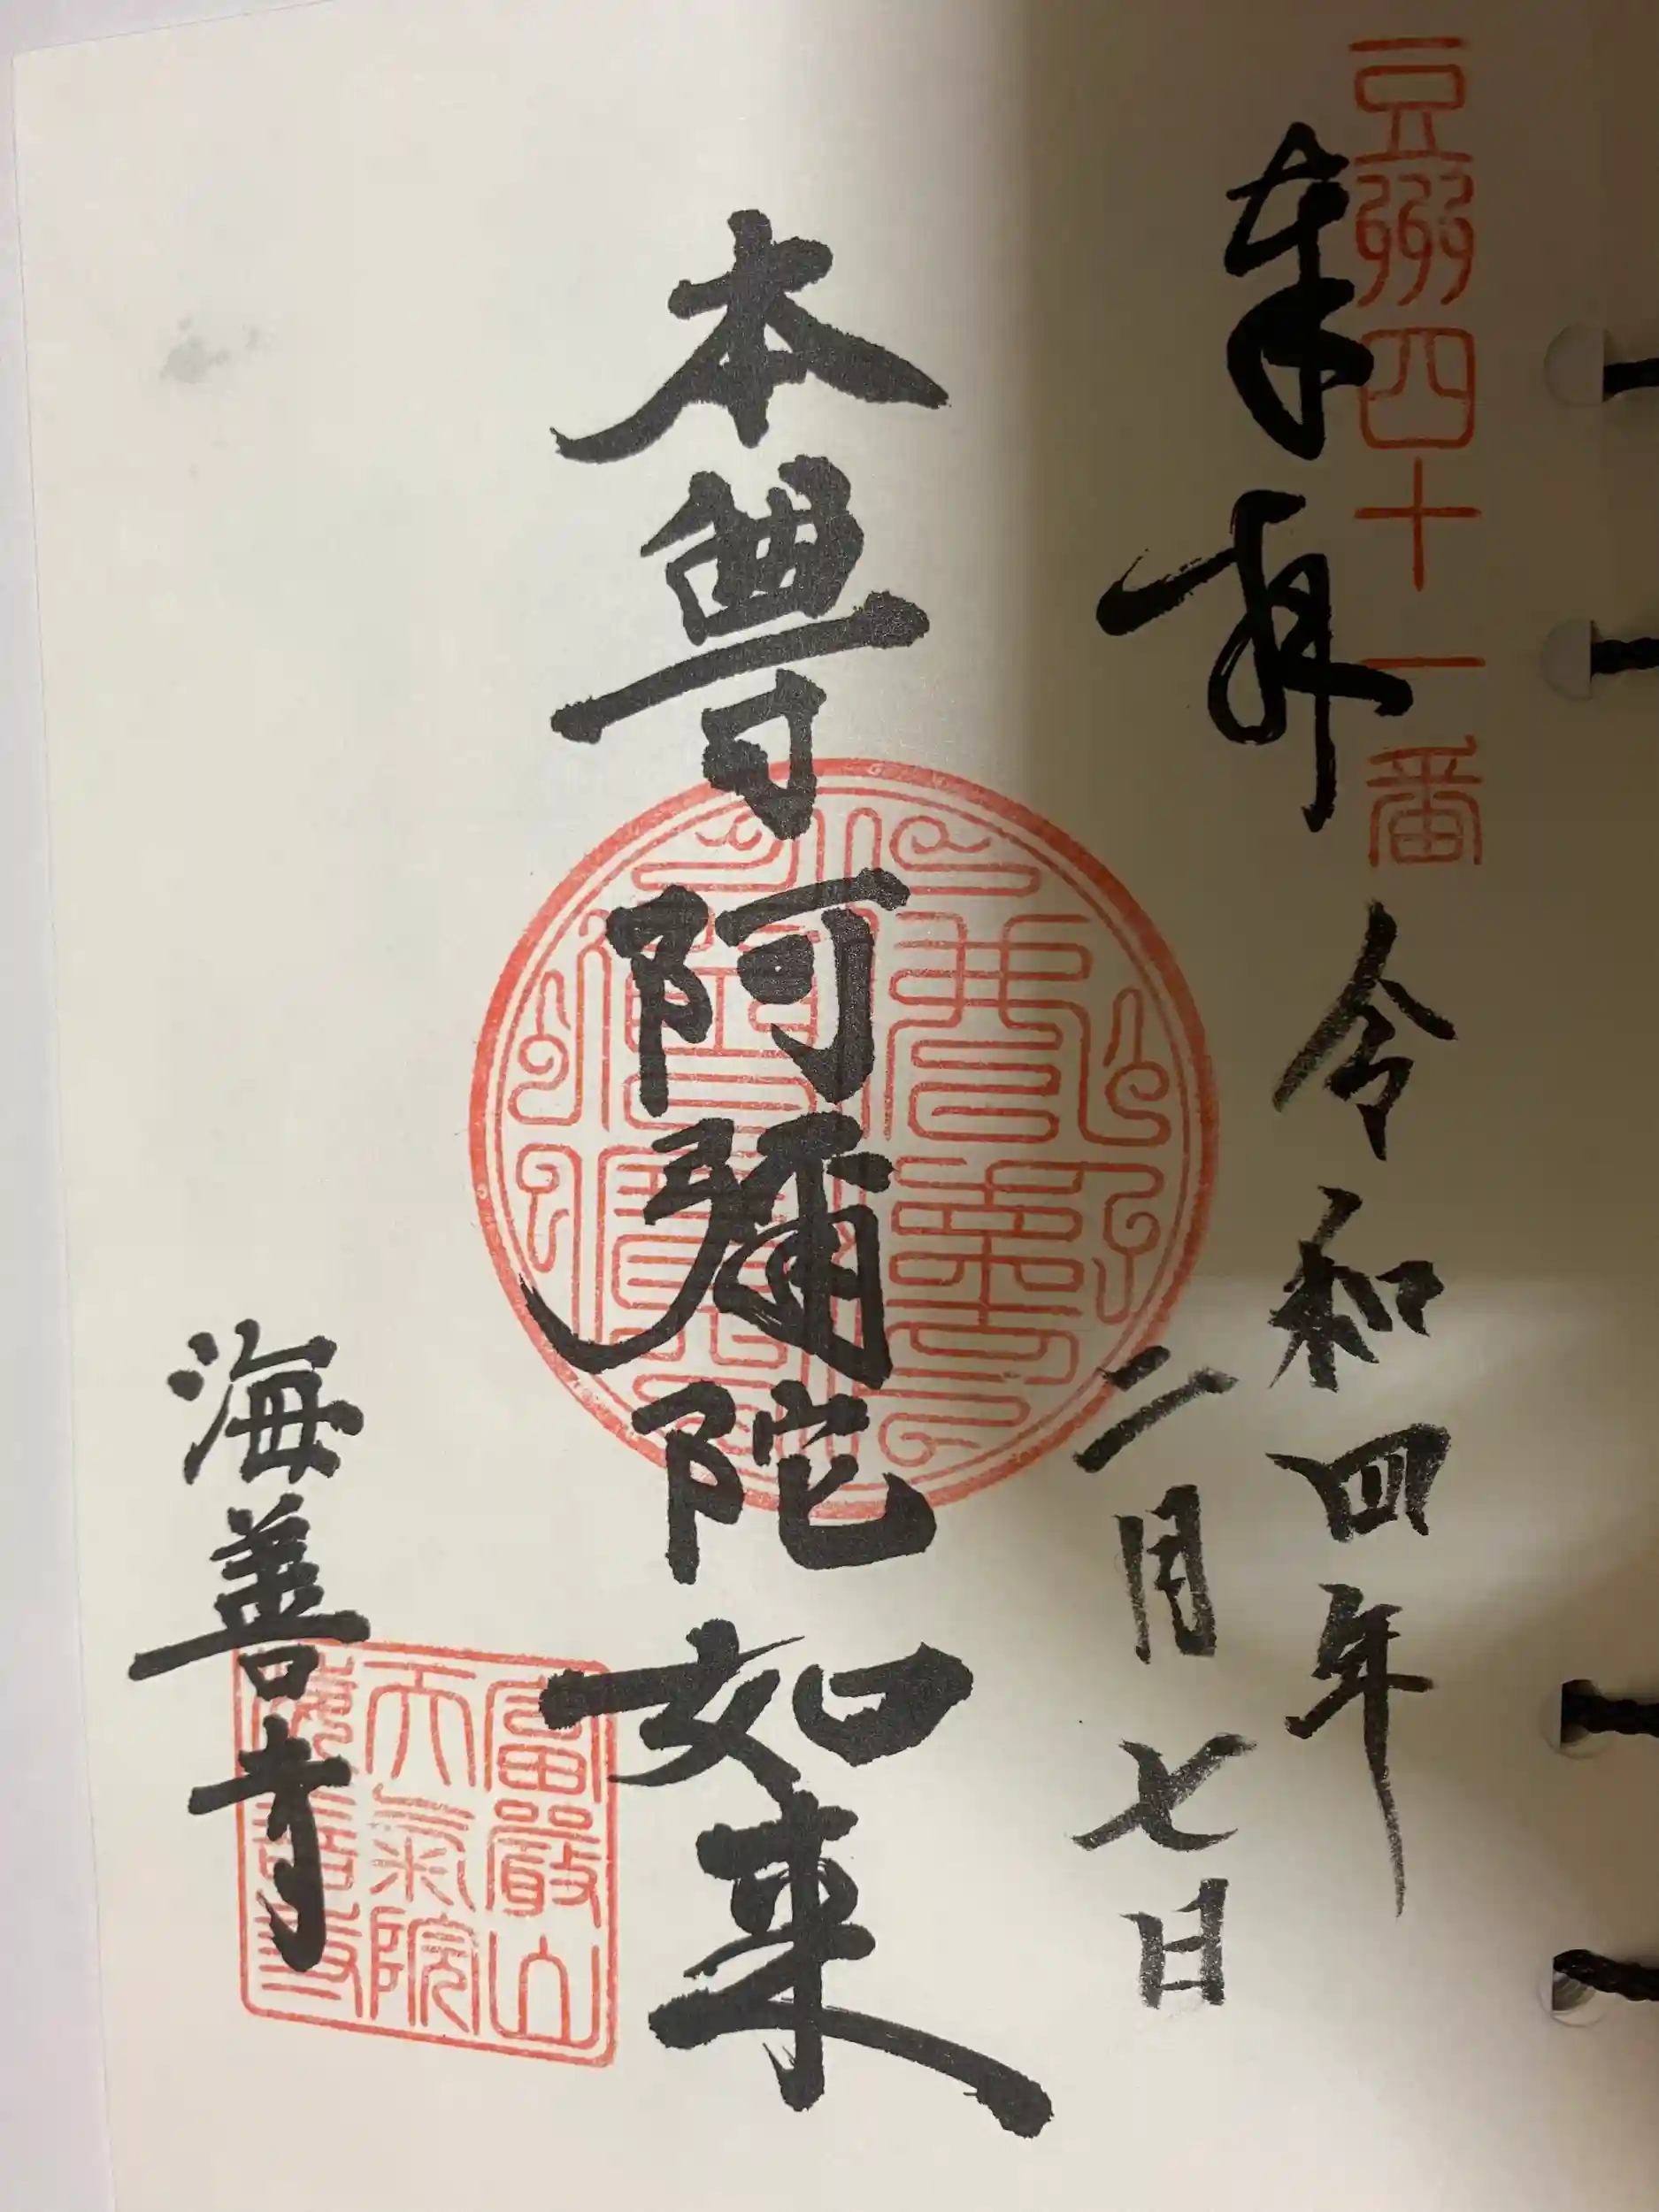 豆州四十一番
奉拜
令和四年
二月七日
本尊阿彌陀如来
海善寺
富嚴山
天氣院
海善寺